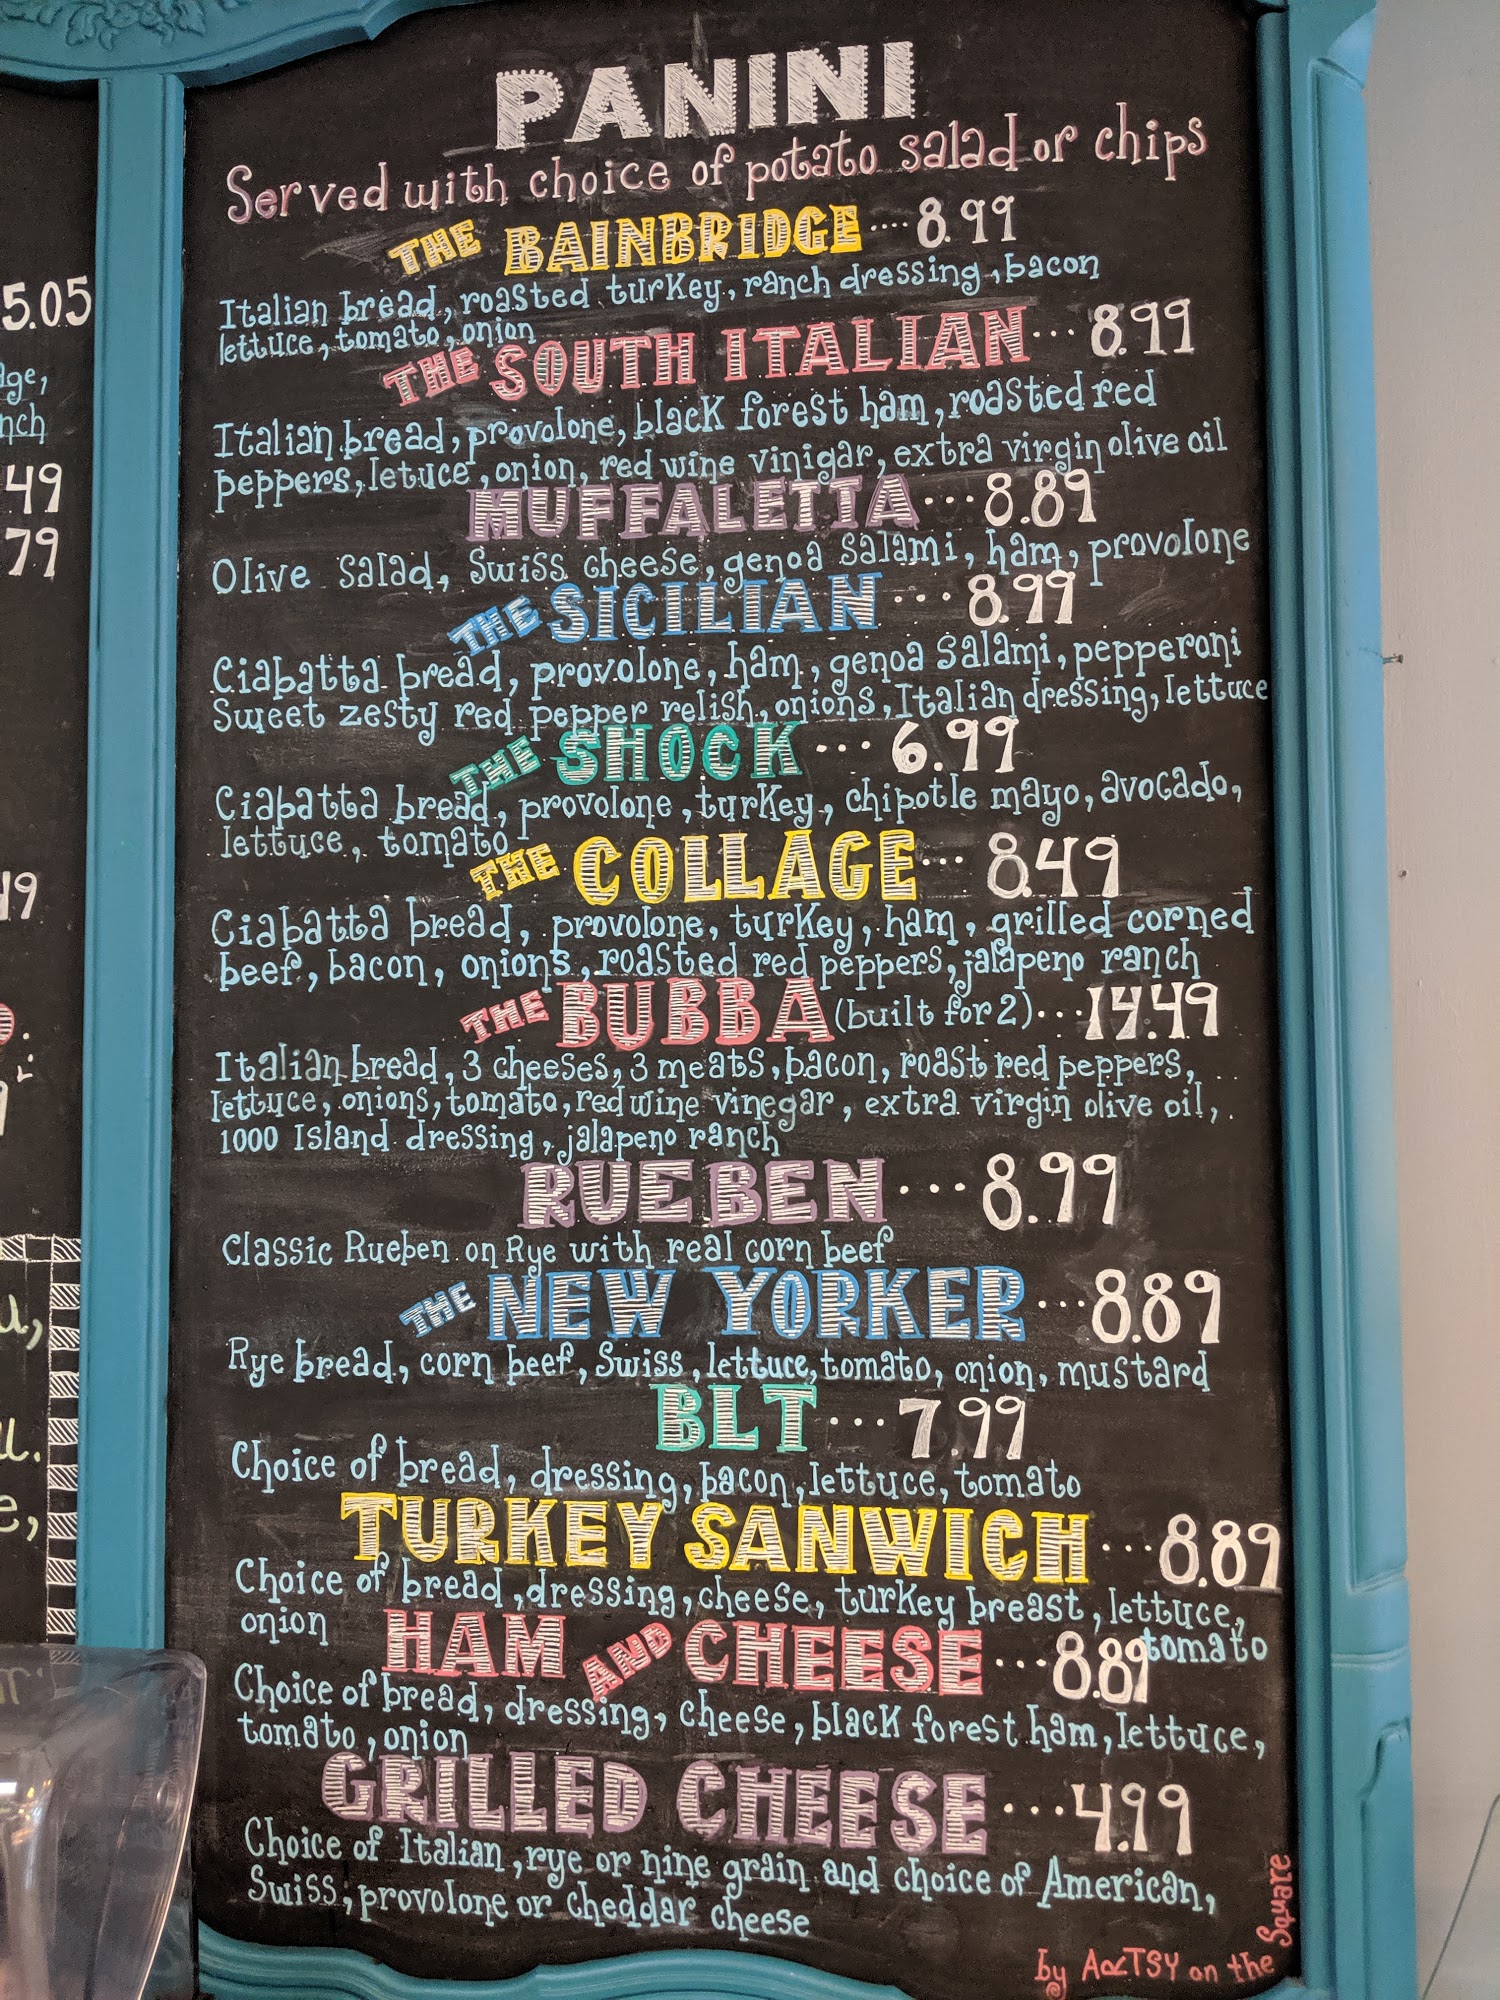 PANINI
Served with choice of potato salad or chips
THE BAINBRIDGE....8.99
Italian bread, roasted turkey, ranch dressing, bacon
lettuce, tomato, onion
THE SOUTH ITALIAN...8.99
Italian bread, provolone, black forest ham, roasted red
peppers, letuce, onion, red wine vinigar, extra virgin olive oil
MUFFALETTA...8.89
Olive salad, Swiss cheese, genoa salami, ham, provolone
THE SICILIAN...8.99
Ciabatta bread, provolone, ham, genoa salami, pepperoni
Sweet zesty red pepper relish, onions, Italian dressing, lettuce
THE SHOCK...6.99
Ciabatta bread, provolone, turkey, chipotle mayo, avocado,
lettuce, tomato
THE COLLAGE...8.49
Ciabatta bread, provolone, turkey, ham, grilled corned
beef, bacon, onions, roasted red peppers, jalapeno ranch
THE BUBBA (built for 2)...14.49
Italian bread, 3 cheeses, 3 meats, bacon, roast red peppers,
lettuce, onions, tomato, red wine vinegar, extra virgin olive oil,
1000 Island dressing, jalapeno ranch
RUEBEN...8.99
Classic Rueben on Rye with real corn beef
THE NEW YORKER...8.89
Rye bread, corn beef, Swiss, lettuce, tomato, onion, mustard
BLT...7.99
Choice of bread, dressing, bacon, lettuce, tomato
TURKEY SANWICH...8.89
Choice of bread, dressing, cheese, turkey breast, lettuce,
tomato
onion
HAM AND CHEESE...8.89
Choice of bread, dressing, cheese, black forest ham, lettuce,
tomato, onion
GRILLED CHEESE...4.99
Choice of Italian, rye or nine grain and choice of American,
Swiss, provolone or cheddar cheese
by ARTSY on the Square
5.05
nch
.49
.79